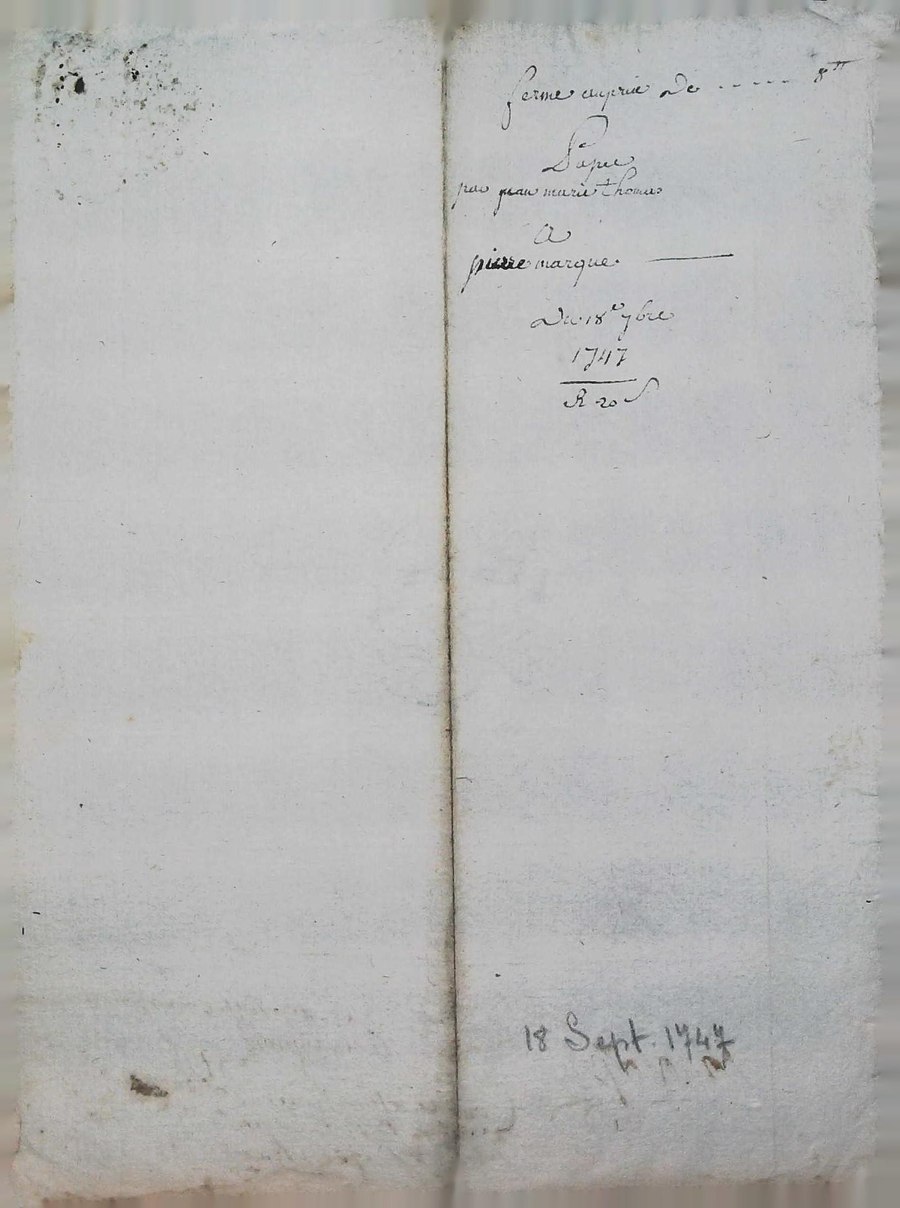 ferme au prix de ..... 8 tt
par jean marie thomas
A
pierre marque
Du 18e 7bre
1747
R 20 s
18 Sept. 1747